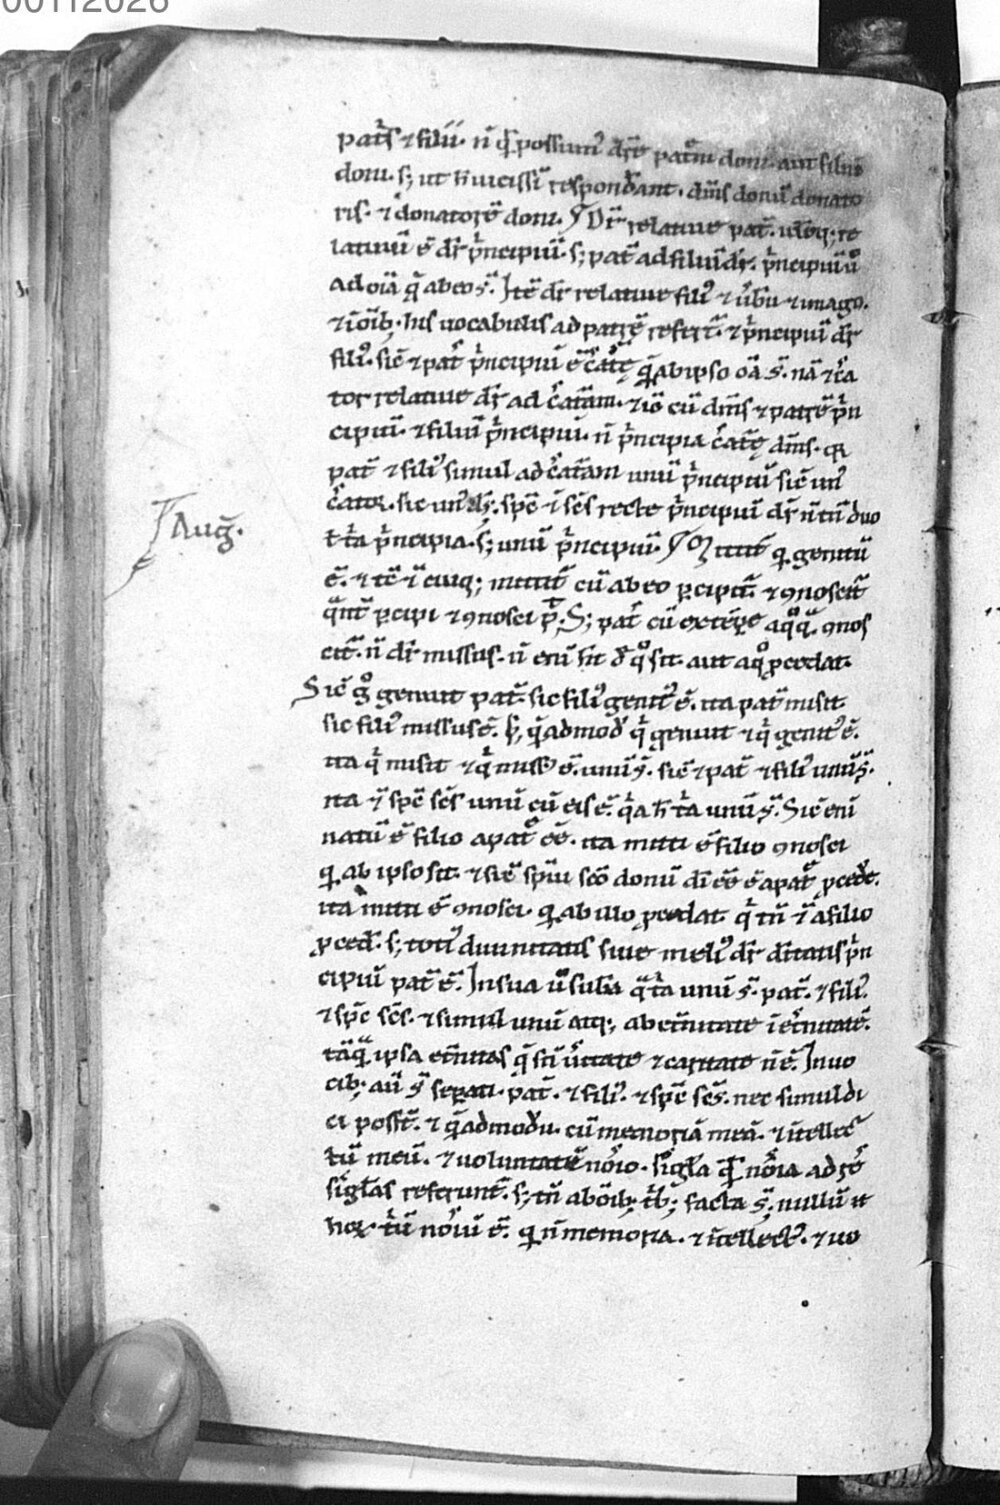 00112026
pat̃s ⁊ filii. ñ q̇ possum᷒ dr̃e patrem doni. aut filiũ
doni. s; ut h̃ uicissĩ respondeant. dim̃s donũ donato
ris. ⁊ donatorẽ doni. Dr̃ relatiue pat̃. idẽq; re
latiuũ ẽ dr̃ p̃ncipiũ. s; pat̃ ad filiũ dr̃. p̃ncipiũ ũ
ad oĩa q̃ ab eo s̃. Itẽ dr̃ relatiue fili᷒ ⁊ ũbũ ⁊ imago.
⁊ ĩ oĩb; his uocabulis ad patrẽ refert̃. ⁊ p̃ncipiũ dr̃
fili᷒. sic̃ ⁊ pat̃ p̃ncipiũ ẽ c̃at̃ẹ q̃ ab ipso oĩa s̃. nã ⁊ c̃a
tor relatiue dr̃ ad c̃atãm. ⁊ iõ cũ dim̃s ⁊ patrẽ p̃n
cipiũ. ⁊ filiũ p̃ncipiũ. ñ p̃ncipia c̃at̃ẹ dim̃s. q̃
pat̃ ⁊ fili᷒ simul ad c̃atãm unũ p̃ncipiũ sic̃ un᷒
c̃ator. sic un᷒ ds̃. sp̃c ⁊ sc̃s recte p̃ncipiũ dr̃ ñ tñ duo
Aug̃.
ł t̃a p̃ncipia. s; unũ p̃ncipiũ. Mittit̃ q̇ genitũ
ẽ. ⁊ tc̃ ⁊ cuiq; mittit̃ cũ ab eo ꝑcipit̃. ⁊ ꝯnoscit̃
q̃nt̃ ꝑcipi ⁊ ꝯnosci p̃t. S; pat̃ cũ ex tẽpore a q̊q̃ ꝯnos
cit̃. ñ dr̃ missus. ñ eni h̃t de q̊ sit. aut a q̊ ꝓcedat.
Sic̃ g̊ genuit pat̃. sic fili᷒ genit᷒ ẽ. ita pat̃ misit
sic fili᷒ missus ẽ. s; q̃admodũ q̇ genuit ⁊ q̇ genit᷒ ẽ.
ita q̇ misit ⁊ q̇ missus ẽ. unũ s̃. sic̃ ⁊ pat̃ ⁊ fili᷒ unũ s̃.
ita ⁊ sp̃c sc̃s unũ cũ eis ẽ. q̇a h̃ t̃a unũ s̃. Sic̃ eni
natũ ẽ filio a pat̃ ẽẽ. ita mitti ẽ filio ꝯnosci
q̇ ab ipso sit. ⁊ sic̃ sp̃ui sc̃o donũ di ẽẽ ẽ a pat̃ ꝓcedẽ.
ita mitti ẽ ꝯnosci. q̇ ab illo ꝓcedat. q̇ tñ ⁊ a filio
ꝓced̃. s; toti᷒ diuinitatis siue meli᷒ dr̃ ditatis p̃n
cipiũ pat̃ ẽ. In sua ũ sub̃a q̃ t̃a unũ s̃. pat̃. ⁊ fili᷒.
⁊ sp̃c sc̃s. ⁊ simul unũ atq; ab et̃nitate ĩ et̃nitatẽ.
tãq̃ ipsa et̃nitas q̃ sñ ũitate ⁊ caritate ñ ẽ. In uo
cib; aũ s̃ seꝑati. pat̃. ⁊ fili᷒. ⁊ sp̃c sc̃s. nec simul di
ci poss̃t. ⁊ q̃admodũ. cũ memoriã meã. ⁊ ĩtellec
tũ meũ. ⁊ uoluntatẽ noĩo. sig̃la q̃ noĩa ad res̃
sig̃las referunt̃. s; tñ ab oĩb; t̃b; facta s̃. nullũ e
hox. t̃ũ noĩũ ẽ. q̇ ñ memoria. ⁊ ĩtellect᷒. ⁊ uo